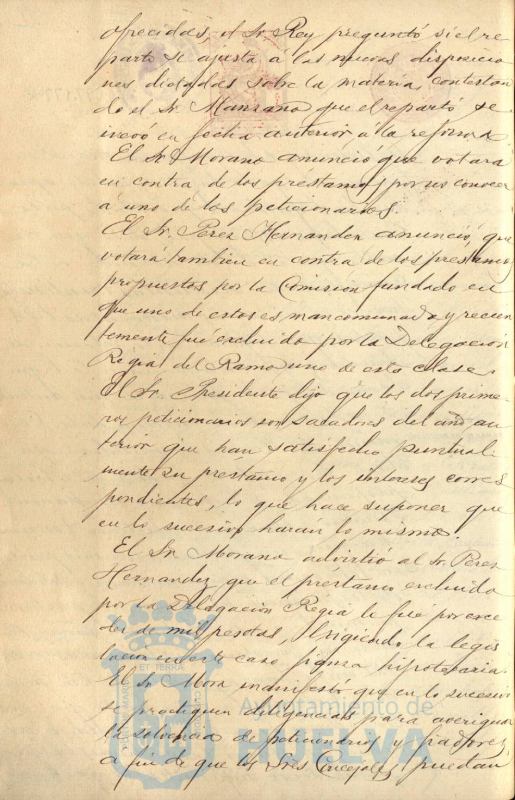 ofrecidas, el Sr. Rey preguntó si el re
parto se ajusta á las nuevas disposicio
nes dictadas sobre la materia, contestan
do el Sr. Manzano que el reparto se
en fecha anterior á la reforma
El Sr. Morano anunció que votará
en contra de los préstamos por no conocer
á uno de los peticionarios.
El Sr. Perez Hernandez anunció, que
votará tambien en contra de los prestamos
propuestos por la Comisión fundado en
que uno de estos es mancomunado y recien
temente fué excluido por la Delegación
Regia del Ramo uno de esta clase.
El Sr. Presidente dijo que los dos prime
ros peticionarios son sacadores del año an
terior que han satisfecho puntual
mente su préstamo y los intereses corres
pondientes, lo que hace suponer que
en lo sucesivo harán lo mismo.
El Sr. Morano advirtió al Sr. Perez
Hernandez que el préstamo excluido
por la Delegación Regia lo fué por exce
der de mil pesetas, exigiendo la legis
lacion en este caso fianza hipotecaria.
El Sr. Mora manifestó que en lo sucesivo
se practiquen diligencias para averiguar
la solvencia de peticionarios y fiadores,
a fin de que los Sres. Concejales puedan
Ayuntamiento de
HUELVA